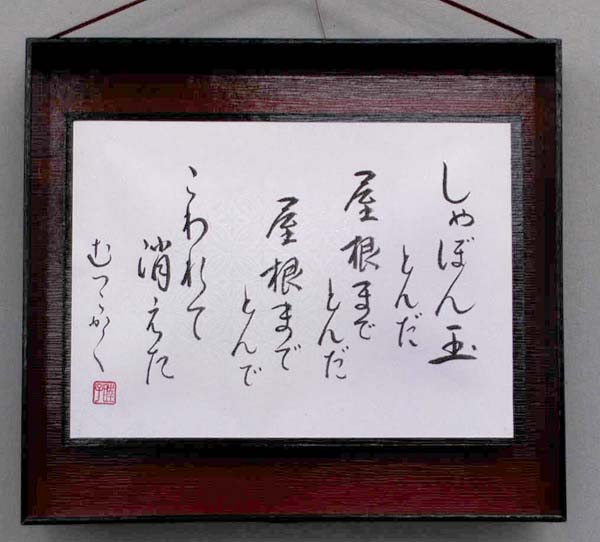 しゃぼん玉
とんだ
屋根まで
とんだ
屋根まで
とんで
こわれて
消えた
むつこかく